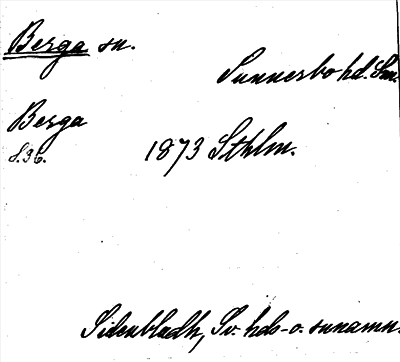 Berga sn.
Sunnerbo hd. Sm.
Berga
S. 36.
1873 Sthlm.
Sidenbladh, Sv. hds- o. snnamn.